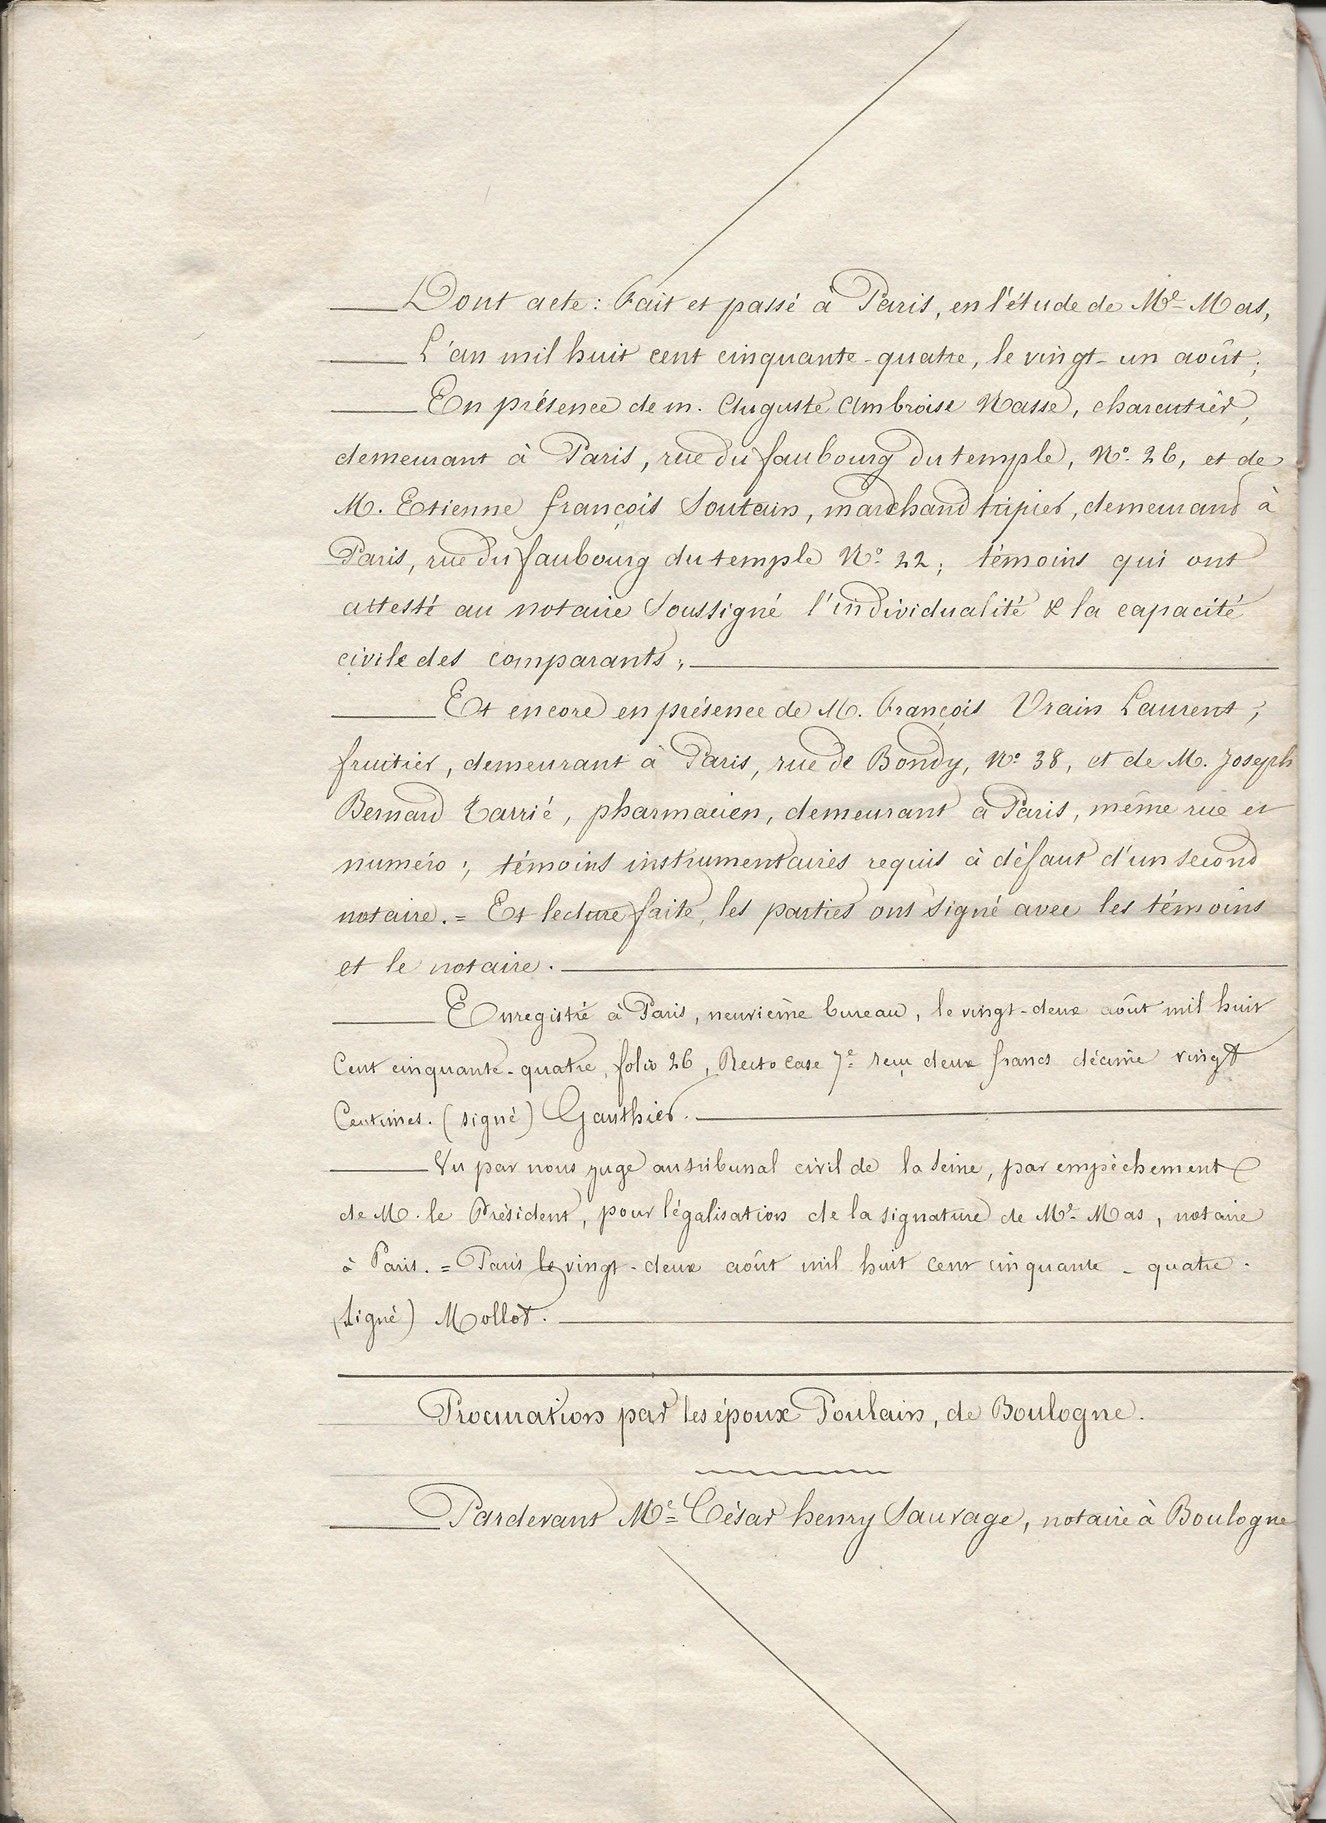 Dont acte : Fait et passé à Paris, en l'étude de Me Mas,
L'an mil huit cent cinquante-quatre, le vingt-un août ;
En présence de m. Auguste Ambroise Masse, charcutier,
demeurant à Paris, rue du faubourg du temple, No 26, et de
M. Etienne françois Soutain, marchand tripier, demeurant à
Paris, rue du faubourg du temple No 22 ; témoins qui ont
attesté au notaire soussigné l'individualité & la capacité
civile des comparants ;
Et encore en présence de M. François Vrain Laurent,
fruitier, demeurant à Paris, rue de Bondy, No 38, et de M. Joseph
Bernard Tarrié, pharmacien, demeurant à Paris, même rue et
numéro ; témoins instrumentaires requis à défaut d'un second
notaire. = Et lecture faite, les parties ont signé avec les témoins
et le notaire.
Enregistré à Paris, neuvième bureau, le vingt-deux août mil huit
Cent cinquante-quatre, folio 26, Recto case 7e reçu deux francs décime vingt
Centimes. (signé) Gauthier.
Vu par nous juge au tribunal civil de la Seine, par empêchement
de M. le Président, pour légalisation de la signature de Me Mas, notaire
à Paris. = Paris le vingt-deux août mil huit cent cinquante-quatre.
(signé) Mollot.
Procuration par les époux Poulain, de Boulogne.
Pardevant Me César henry Sauvage, notaire à Boulogne